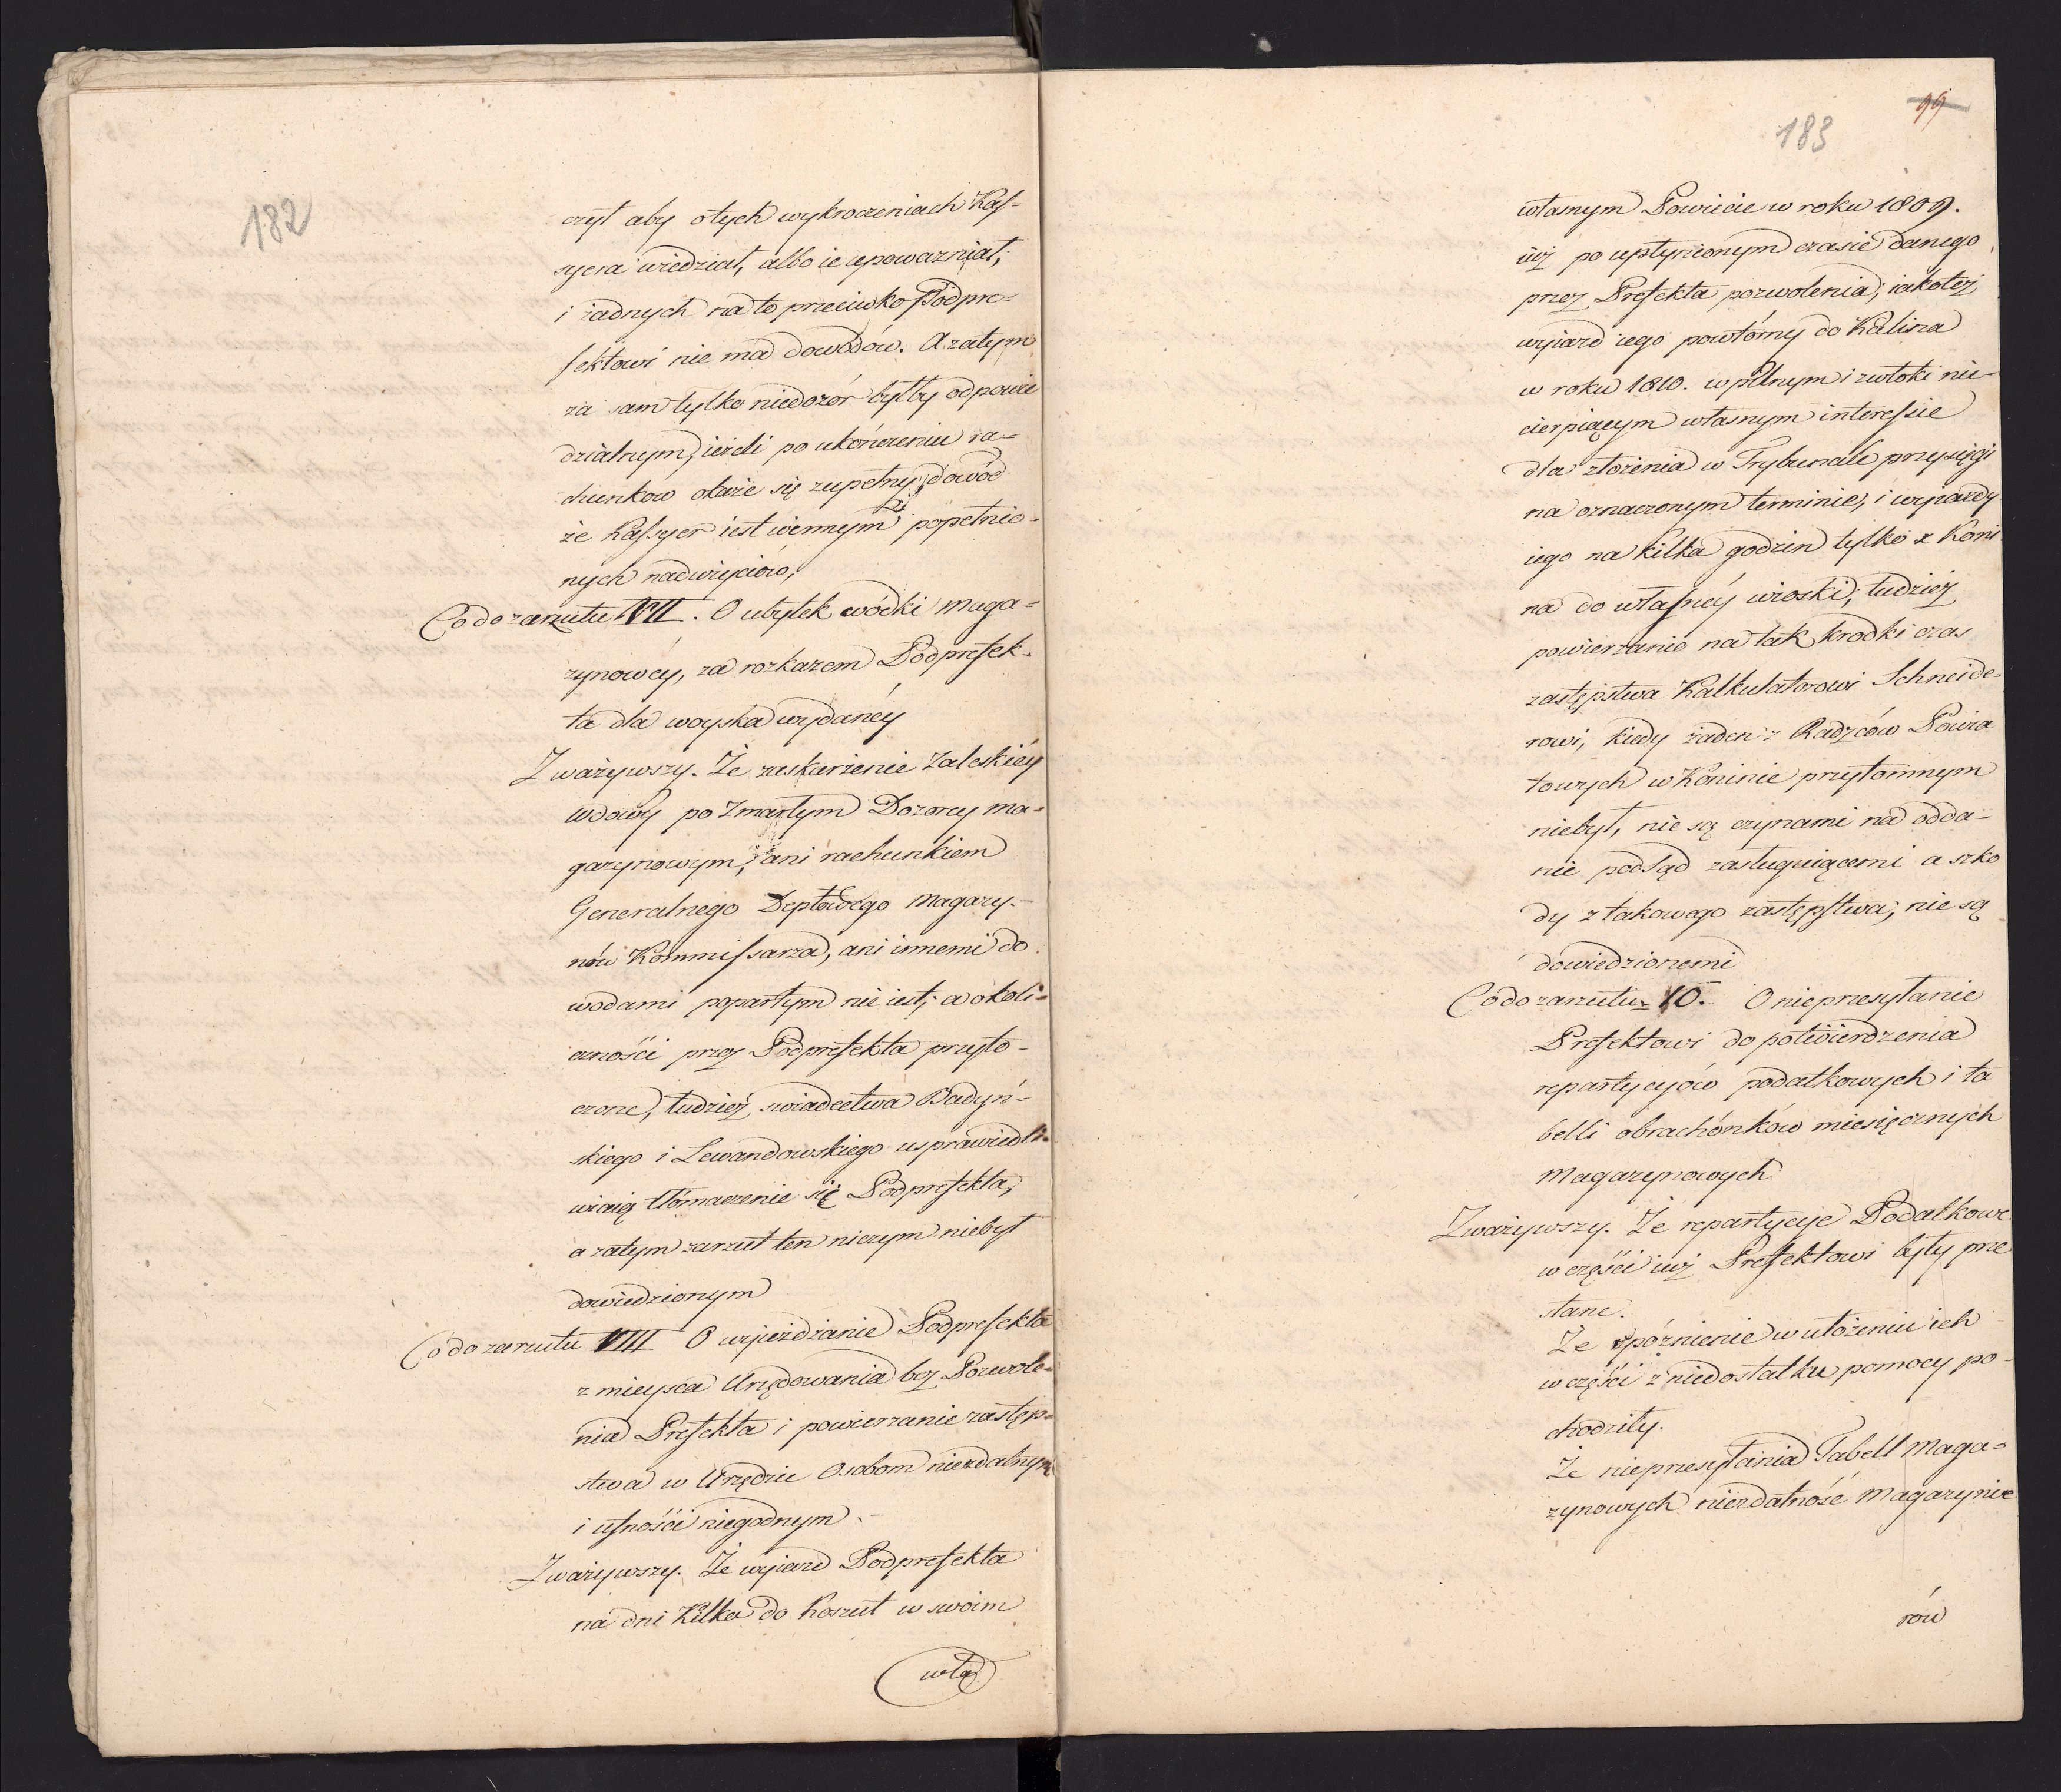 182
czył aby o tych wykroczeniach Kas-
syera wiedział, albo ie upoważniał,
i żadnych na to przeciwko Podpre-
fektowi nie ma dowodów. A zatym
za sam tylko niedozór byłby odpowie
dzialnym, ieżeli po ukończeniu ra-
chunków okaże się zupełny dowód
że Kassyer iest winnym popełnio-
nych nadużyciów,
Co do zarzutu VII. O ubytek wódki maga-
zynowéy, za rozkazem Podprefek-
ta dla woyska wydanéy
Zważywszy. Że zaskarżenie Zaleskiéy
wdowy po Zmarłym Dozorcy ma-
gazynowym, ani rachunkiem
Generalnego Deptowego Magazy-
nów Kommissarza, ani innemi do
wodami popartym nie iest, a okoli-
czności przez Podprefekta przyto-
czone, tudzież swiadectwa Badyń-
skiego i Lewandowskiego usprawiedli-
wiaią tłómaczenie się Podprefekta,
a zatym zarzut ten niczym niebył
dowiedzionym
Co do zarzutu VIII O wyieżdżanie Podprefekta
z mieysca Urzędowania bez Pozwole-
nia Prefekta i powierzanie zastęp-
stwa w Urzędzie Osobom niezdatnym
i ufności niegodnym.-
Zważywszy. Że wyiazd Podprefekta
na dni Kilka do Koszut w swoim
wła
99
183
własnym Powiecie w roku 1809.
iuż po upłynionym czasie danego
przez Prefekta pozwolenia, iakoteż
wyiazd iego powtórny do Kalisza
w roku 1810. w pilnym i zwłoki nie-
cierpiącym własnym interessie
dla złożenia w Trybunale przysięgi
na oznaczonym terminie, i wyiazdy
iego na kilka godzin tylko z Koni
na do własnéy wioski, tudzież
powierzanie na tak krodki czas
zastępstwa Kalkulatorowi Schneide-
rowi, kiedy żaden z Radzców Powia
towych w Koninie przytomnym
niebył, nie są czynami na odda-
nie pod Sąd zasługuiącemi a szko
dy z takowego zastępstwa, nie są
dowiedzionemi
Co do zarzutu 10. O nieprzesyłanie
Prefektowi do potwierdzenia
repartycyów podatkowych i ta
belli obrachónków miesięcznych
Magazynowych
Zważywszy. Że repartycye Podatkowe
w części iuż Prefektowi były prze
słane.
Że spóznienie w ułożeniu ich
w części z niedostatku pomocy po-
chodziły.
Że nieprzesyłania Tabell Maga-
zynowych niezdatność Magazynie
rów